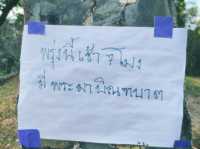 พรุ่งนี้เช้า 7 โมง
มี พระมาบิณฑบาต